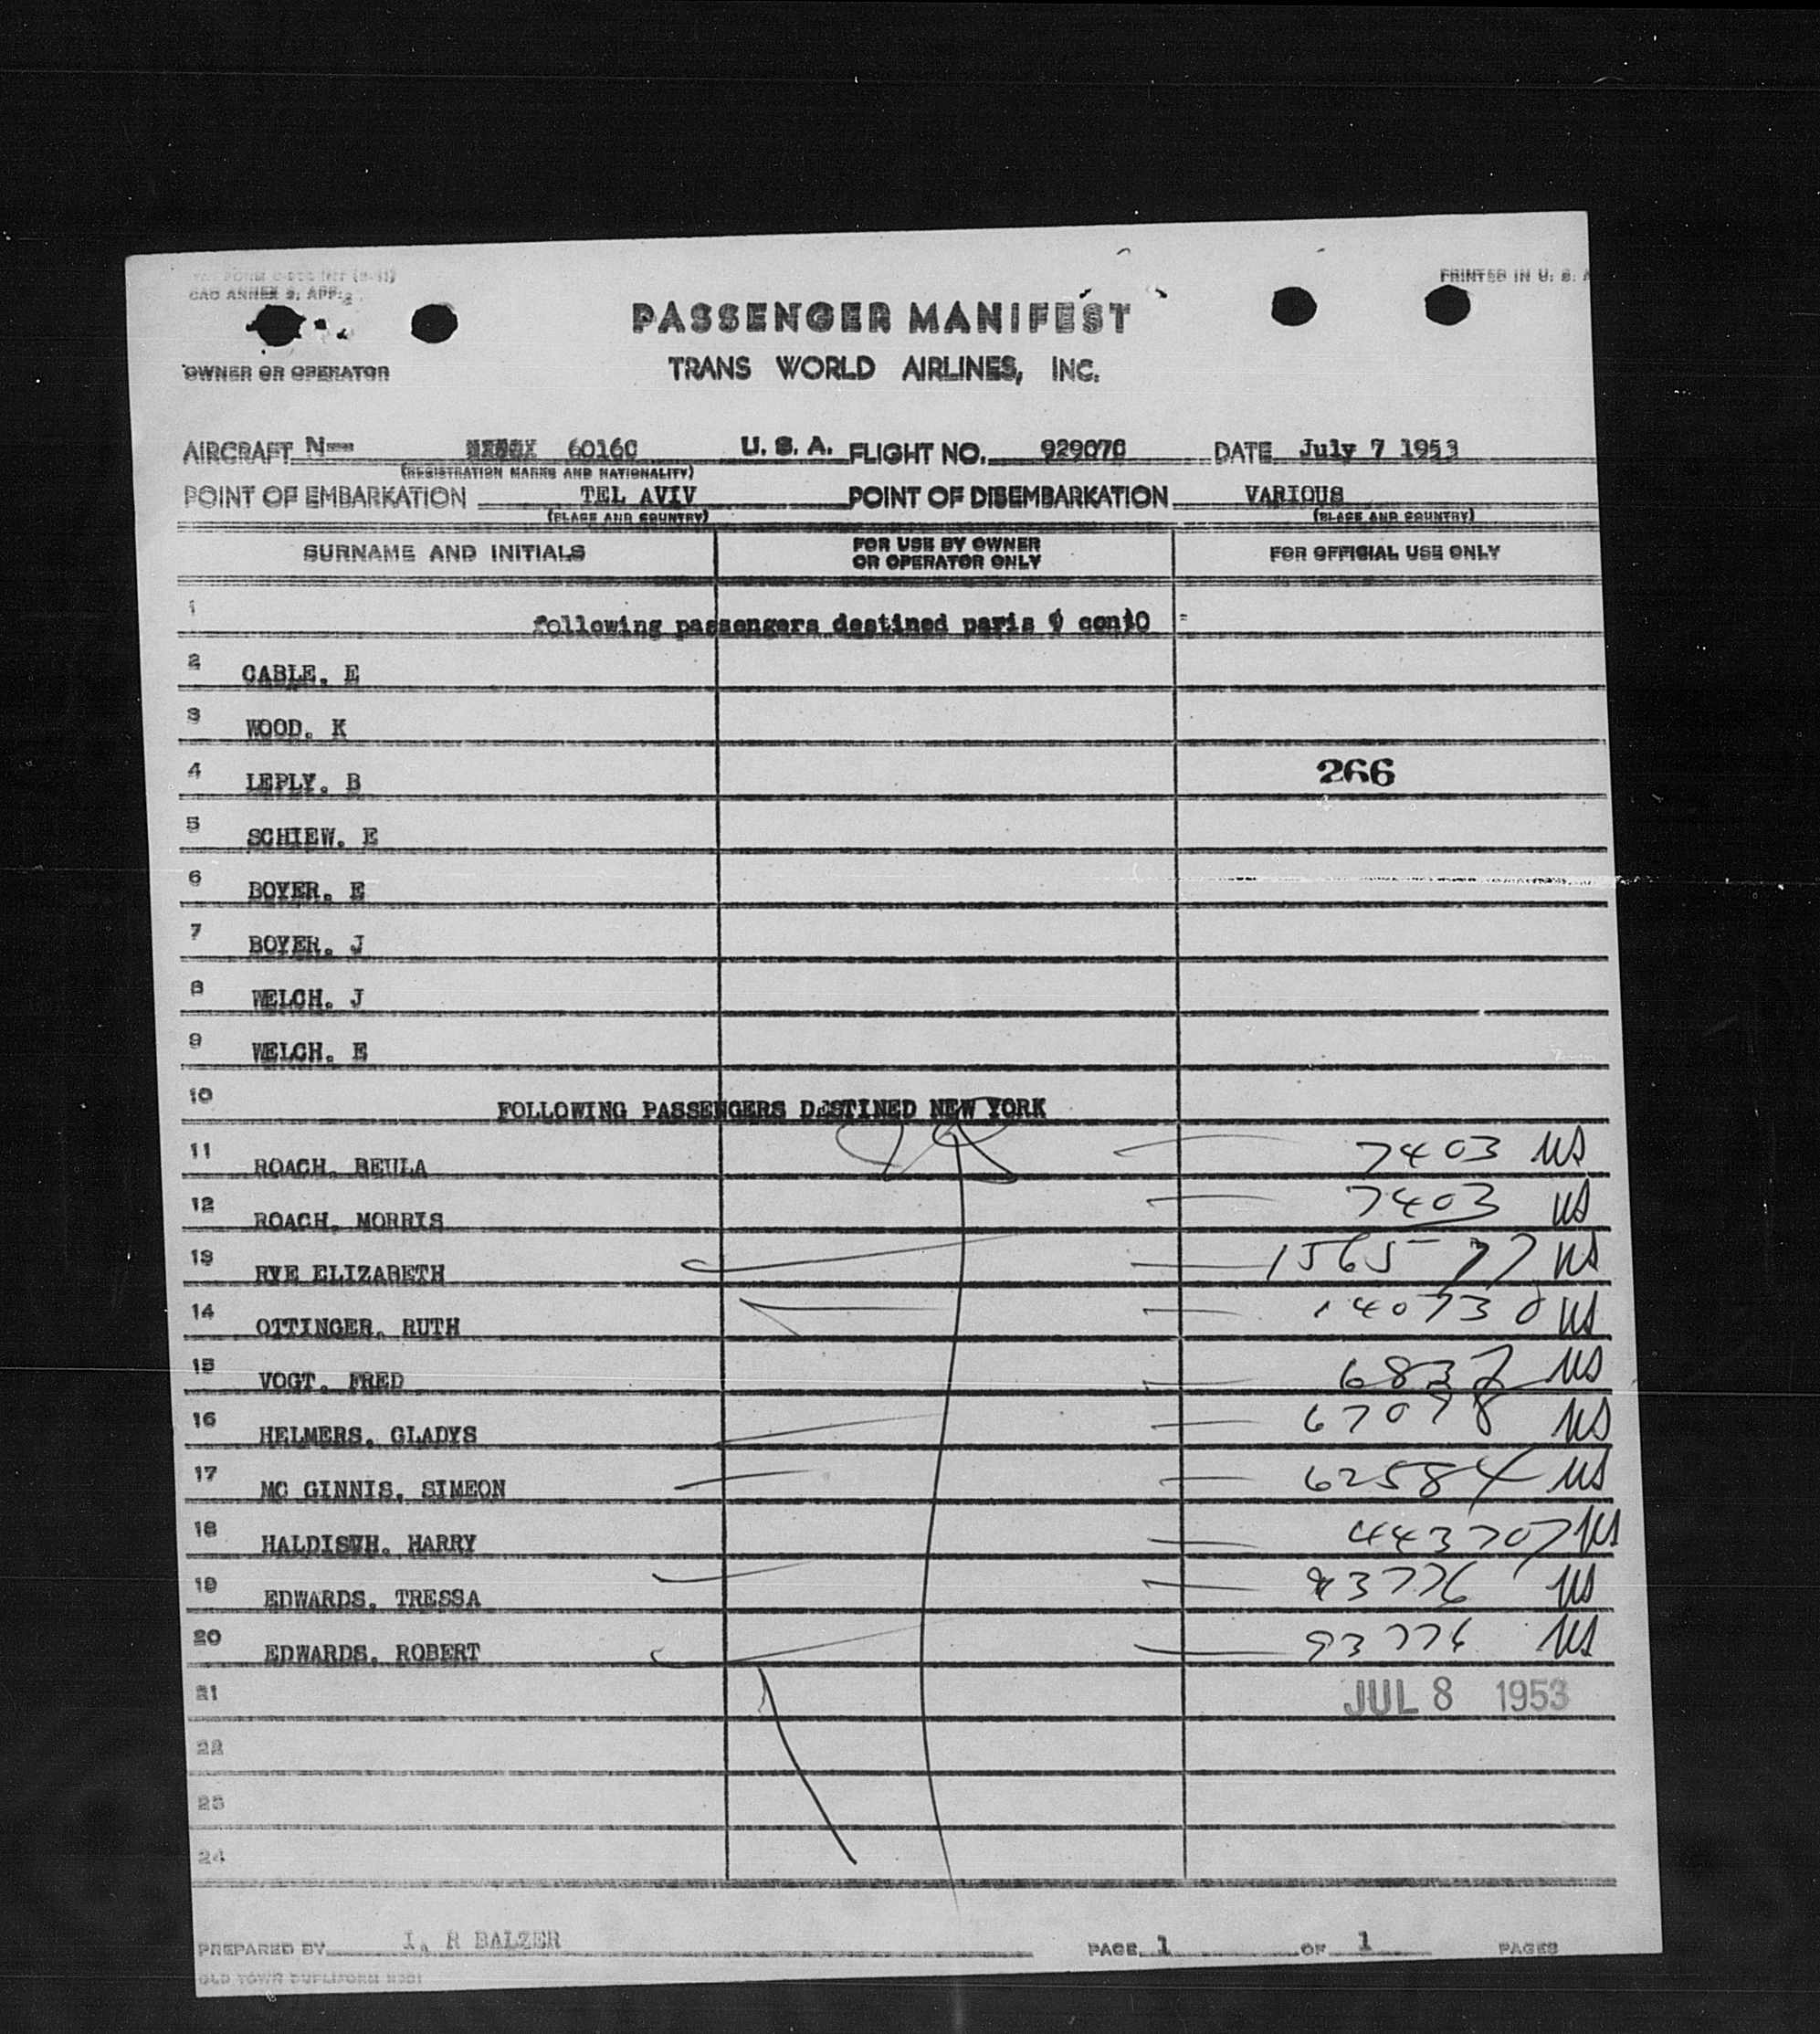 CAO ANNEX 9, APP. 2
PRINTED IN U. S. A
PASSENGER MANIFEST
OWNER OR OPERATOR
TRANS WORLD AIRLINES, INC.
AIRCRAFT N-- 6016C U. S. A. FLIGHT NO. 929070 DATE July 7 1953
(REGISTRATION MARKS AND NATIONALITY)
POINT OF EMBARKATION TEL AVIV POINT OF DISEMBARKATION VARIOUS
(PLACE AND COUNTRY) (PLACE AND COUNTRY)
SURNAME AND INITIALS FOR USE BY OWNER OR OPERATOR ONLY FOR OFFICIAL USE ONLY
1 following passengers destined paris
2 CABLE. E
3 WOOD. K
4 LEPLY. B 266
5 SCHIEW. E
6 BOYER. E
7 BOYER. J
8 WELCH. J
9 WELCH. E
10 FOLLOWING PASSENGERS DESTINED NEW YORK
11 ROACH. BEULA 7403 US
12 ROACH. MORRIS 7403 US
13 RYE ELIZABETH 156577 US
14 OTTINGER. RUTH 140730 US
15 VOGT. FRED 6832 US
16 HELMERS. GLADYS 67078 US
17 MC GINNIS. SIMEON 62584 US
18 HARRY 443707 US
19 EDWARDS. TRESSA 93776 US
20 EDWARDS. ROBERT 93776 US
21 JUL 8 1953
22
23
24
PREPARED BY I. R BALZER PAGE 1 OF 1 PAGES